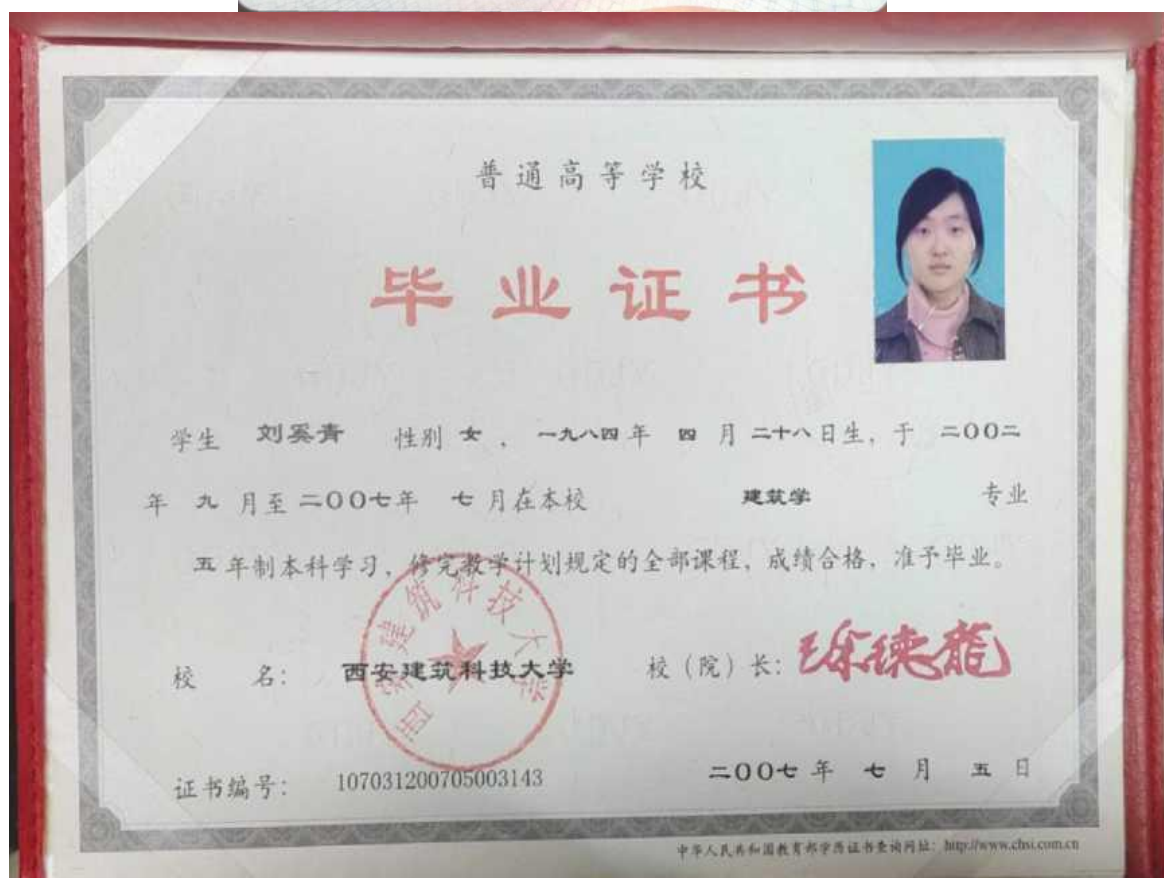 普通高等学校
毕业证书
学生 刘奚青 性别 女 ，一九八四年 四 月 二十八日生，于 二00二
年 九 月至 二00七年 七 月在本校 建筑学 专业
五 年制本科学习，修完教学计划规定的全部课程，成绩合格，准予毕业。
校 名： 西安建筑科技大学 校（院）长： 徐德龙
西安建筑科技大学
证书编号： 107031200705003143 二00七 年 七 月 五 日
中华人民共和国教育部学历证书查询网址：http://www.chsi.com.cn